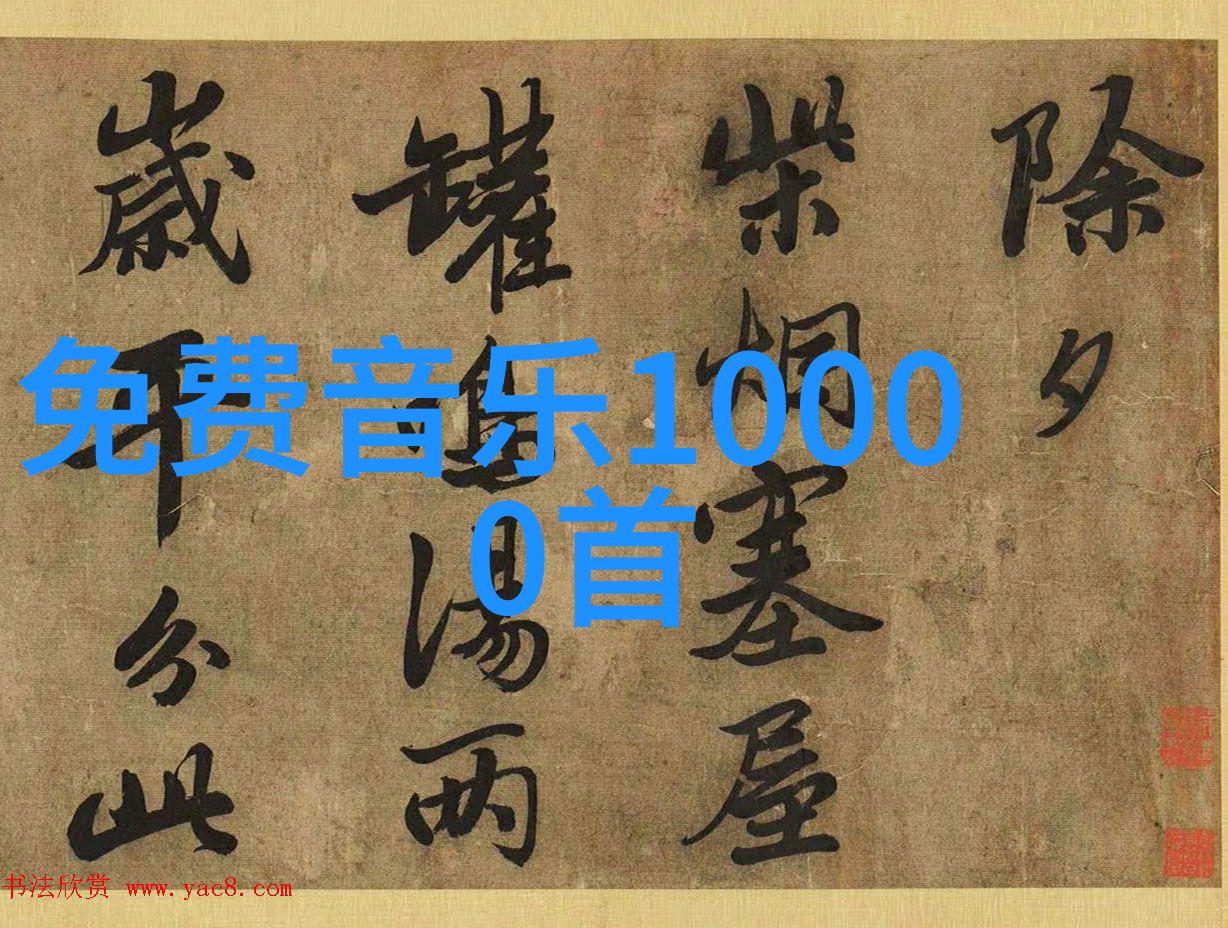 除夕
柴烟塞屋
罐鳴湯两
歲平分此
免费音乐1000
0首
书法欣赏 www.yac8.com